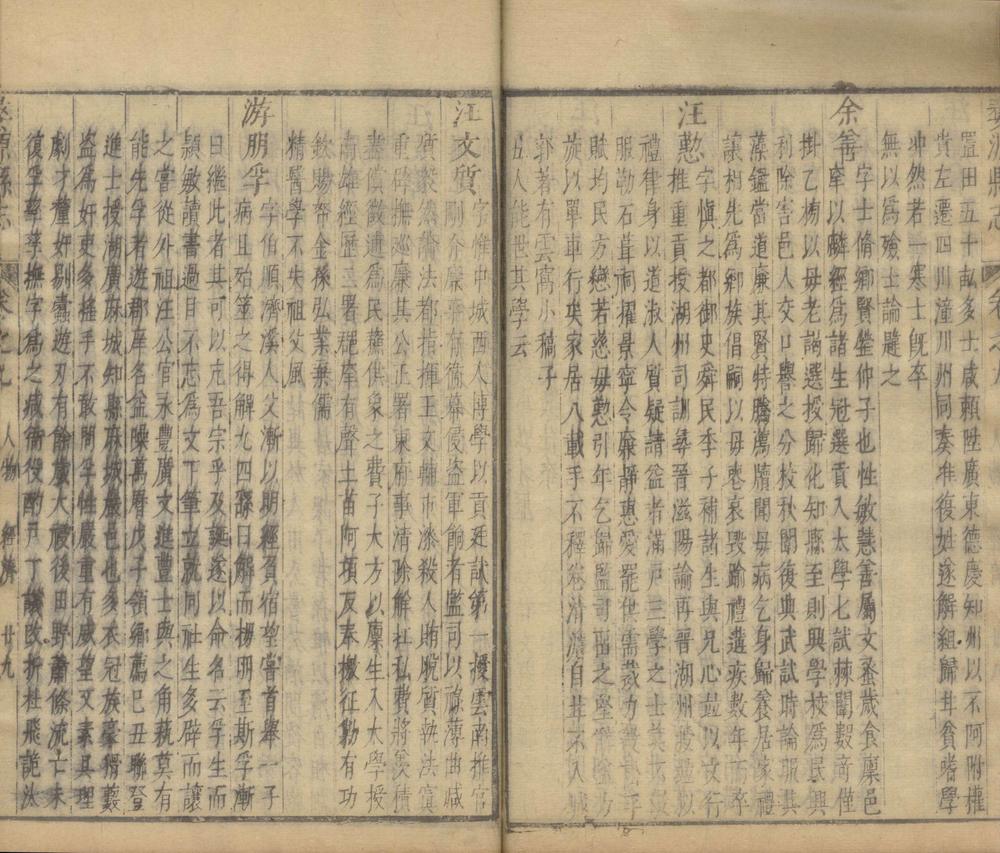 婺源縣志 卷之九
置田五十畝多士咸賴陞廣東德慶知州以不阿附權
貴左遷四川潼川州同奏准復姓遂解組歸甘貧嗜學
冲然若一寒士既卒
無以為殮士論韙之
余善
字士脩鄉賢鎣仲子也性敏慧善屬文蚤歲食廩邑
庠以麟經為諸生冠選貢入太學七試棘闈數奇僅
掛乙榜以母老謁選授歸化知縣至則興學校為民興
利除害邑人交口譽之分校秋闈復典武試時論服其
藻鑑當道廉其賢特騰薦牘聞母病乞身歸養居家禮
讓相先為鄉族倡嗣以母喪哀毀踰禮遘疾數年而卒
汪懃
字慎之都御史舜民季子補諸生與兄心並以文行
推重貢授湖州司訓彞晉滋陽論再晉湖州
禮律身以道淑人質疑請益者滿戶三學之士
服勒石葺祠擢景寧令廉靜惠愛罷他需
賦均民方戀若慈母懃引年乞歸監司留之堅
族以單車行矣家居八載手不釋卷清澹自甘不入城
郭著有雲窩小稿子
五人能世其學云
汪文質
字惟中城西人博學以貢廷試第一授雲南推官
剛介廉
質毅然論法都指揮王文輔
重碑撫巡廉其公正署東府事清除解社私費將羨積
者償徵逋為民蘇供象之費子大方以廩生入太學授
南雄經歷三署郡庠有聲土苗阿項反奉檄征勦有功
欽賜帑金孫弘業業儒
精醫學不失祖父風
游朋孚
字伯順濟溪人父漸以明經負宿望嘗首舉一子
病且殆筮之得解九四繇曰解而拇朋至斯孚漸
曰繼此者其可以充吾宗乎及誕遂以命名云孚生而
頴敏讀書過目不忘為文下筆立就同社生多辟而讓
之嘗從外祖汪公官永豐廣文進豐士與之角藝莫有
能先孚者遊郡庠名益噪萬曆戊子領鄉薦己丑聯登
進士授湖廣麻城知縣麻城嚴邑也多衣冠族豪猾藪
盜為奸吏多搖手不敢問孚性嚴重有威望又素具理
劇才釐奸剔蠹遊刃有餘歲大祲後田野蕭條流亡未
復孚孳孳撫字為之戒衙役酌戶丁議改折杜飛詭汰
婺源縣志 卷之九 人物 經濟 廿九